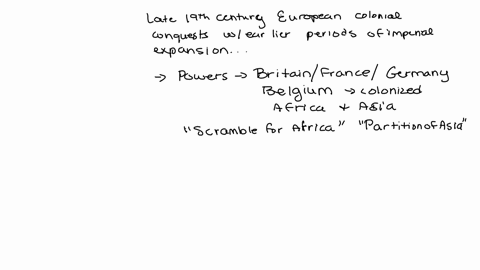 Late 19th century European colonial
conquests w/ earlier periods of imperial
expansion...
→ Powers → Britain/France/Germany
Belgium → colonized
Africa + Asia
"Scramble for Africa" "Partition of Asia"